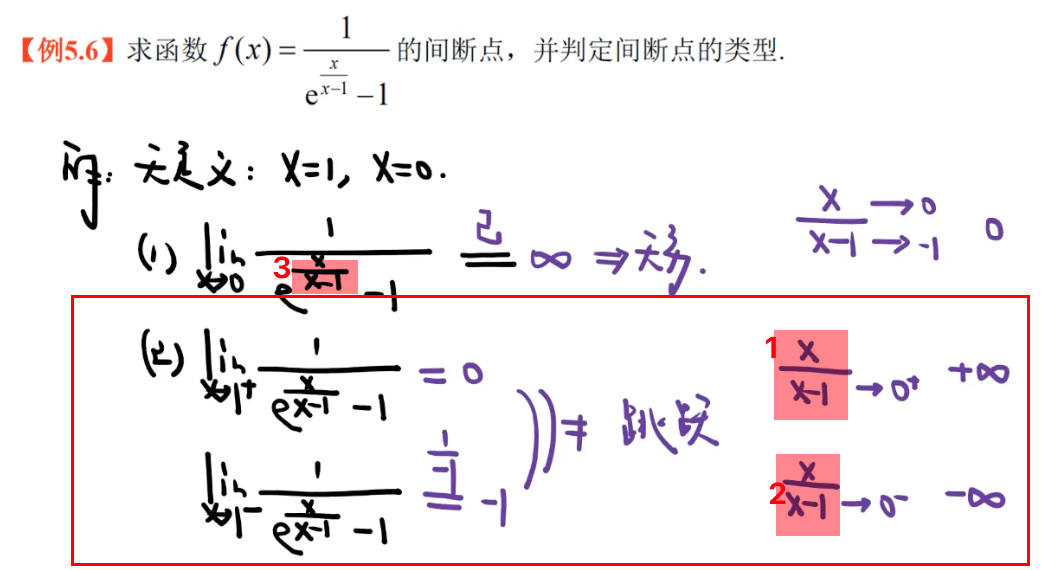 【例5.6】求函数 f(x) = 1/(e^(x/(x-1)) - 1) 的间断点，并判定间断点的类型.
解：无定义：x=1, x=0.
(1) lim x→0 1/(e^(x/(x-1)) - 1) = ∞ ⇒ 无穷. x→0 / x-1→-1 0
3
(2) lim x→1⁺ 1/(e^(x/(x-1)) - 1) = 0 1 x/(x-1) →0⁺ +∞
≠ 跳跃
lim x→1⁻ 1/(e^(x/(x-1)) - 1) = 1/-1 = -1 2 x/(x-1) →0⁻ -∞